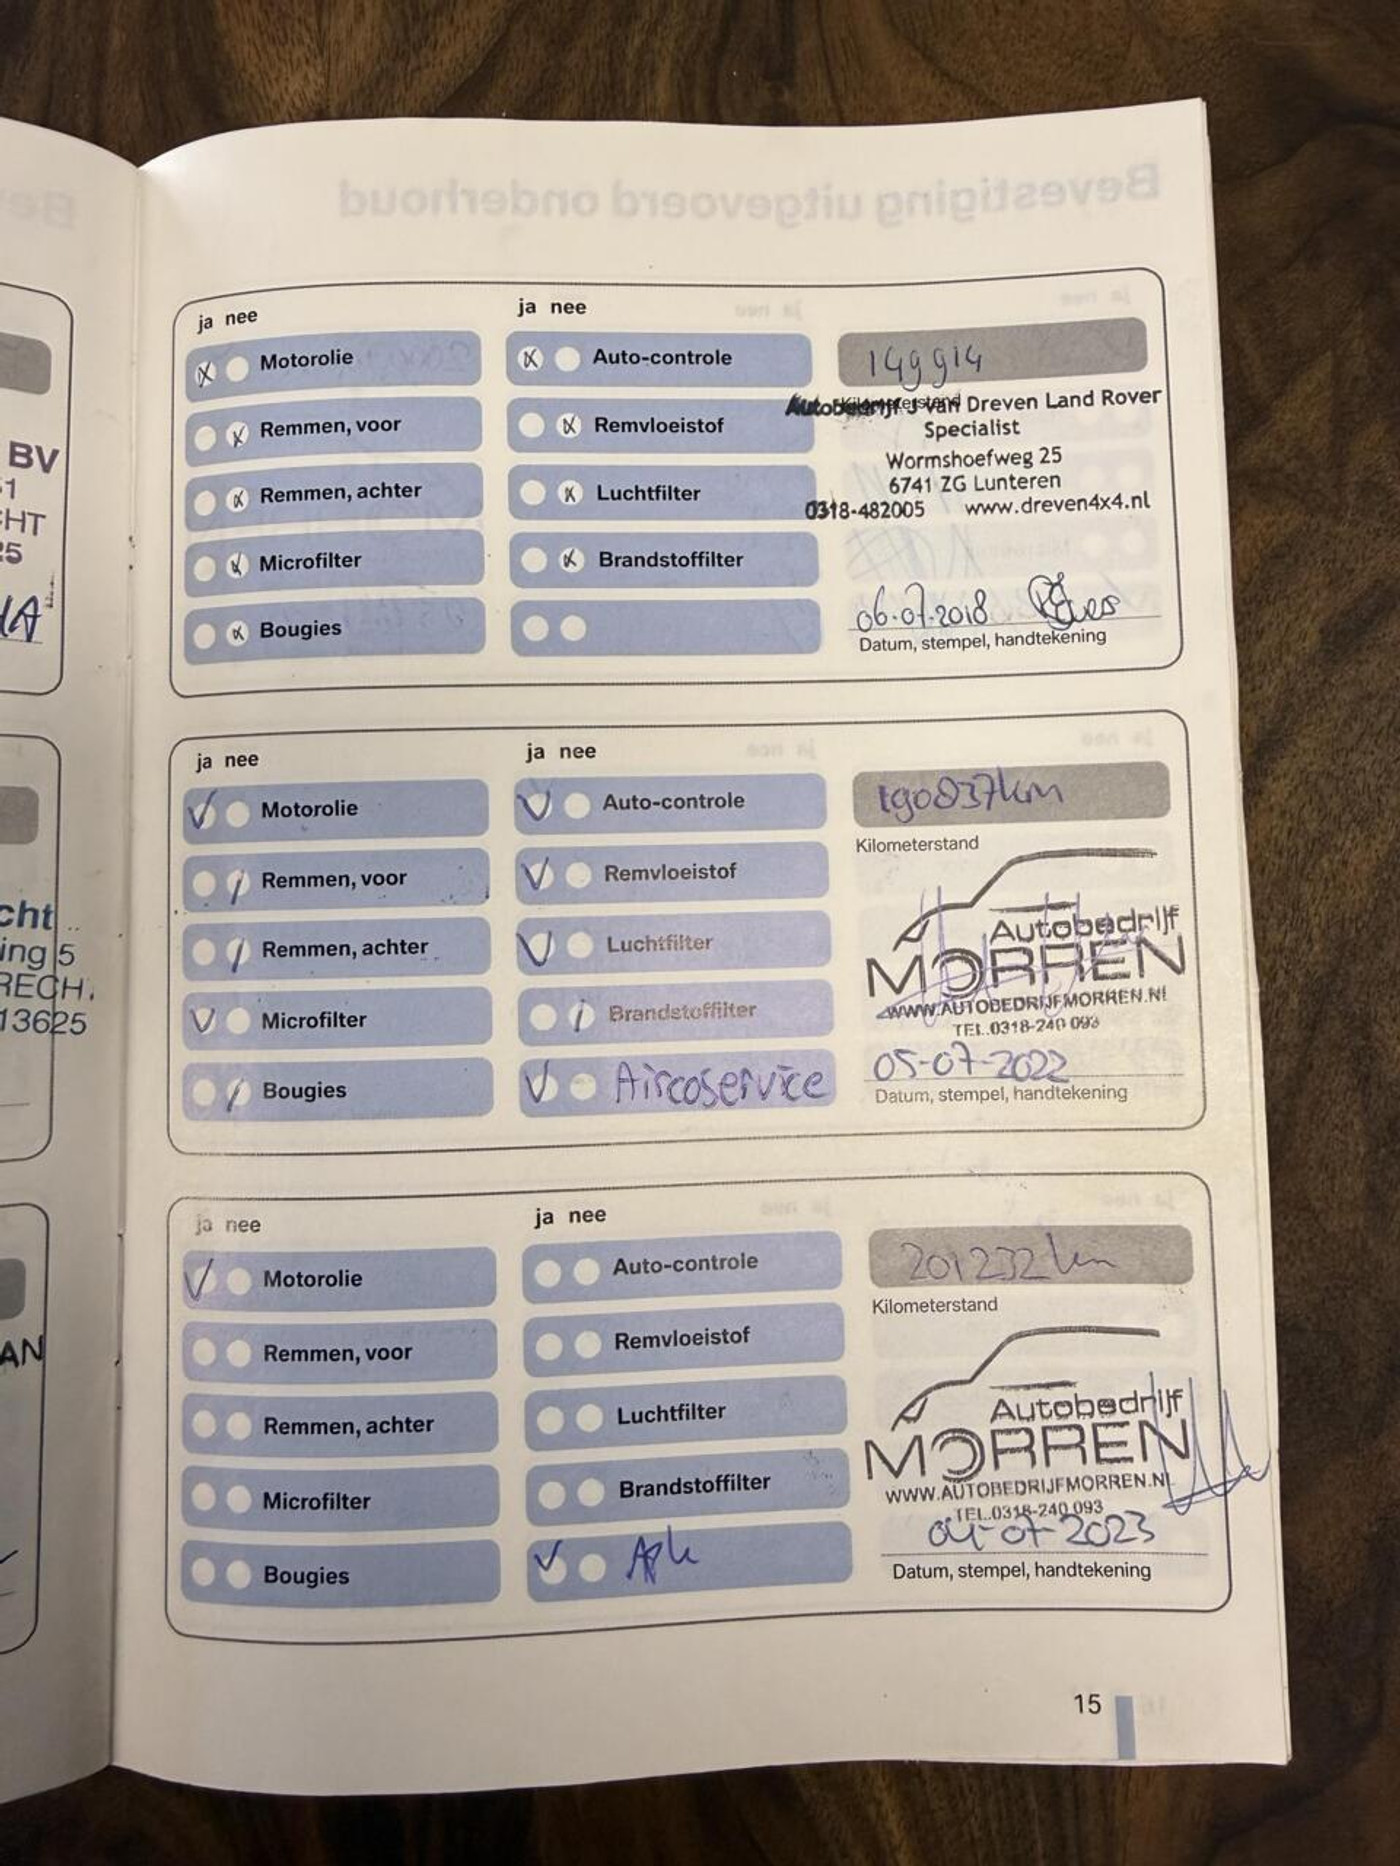 Bevestiging uitgevoerd onderhoud
BV
CHT
25
cht
ing 5
RECH.
13625
AN
ja nee
Motorolie
Remmen, voor
Remmen, achter
Microfilter
Bougies
ja nee
Auto-controle
Remvloeistof
Luchtfilter
Brandstoffilter
149914
Kilometerstand
Autobedrijf J van Dreven Land Rover
Specialist
Wormshoefweg 25
6741 ZG Lunteren
0318-482005 www.dreven4x4.nl
06-07-2018
Datum, stempel, handtekening
ja nee
Motorolie
Remmen, voor
Remmen, achter
Microfilter
Bougies
ja nee
Auto-controle
Remvloeistof
Luchtfilter
Brandstoffilter
Aircoservice
190837km
Kilometerstand
Autobedrijf
MORREN
WWW.AUTOBEDRIJFMORREN.NL
TEL.0318-240 093
05-07-2022
Datum, stempel, handtekening
ja nee
Motorolie
Remmen, voor
Remmen, achter
Microfilter
Bougies
ja nee
Auto-controle
Remvloeistof
Luchtfilter
Brandstoffilter
Apk
201232 km
Kilometerstand
Autobedrijf
MORREN
WWW.AUTOBEDRIJFMORREN.NL
TEL.0318-240 093
04-07-2023
Datum, stempel, handtekening
15